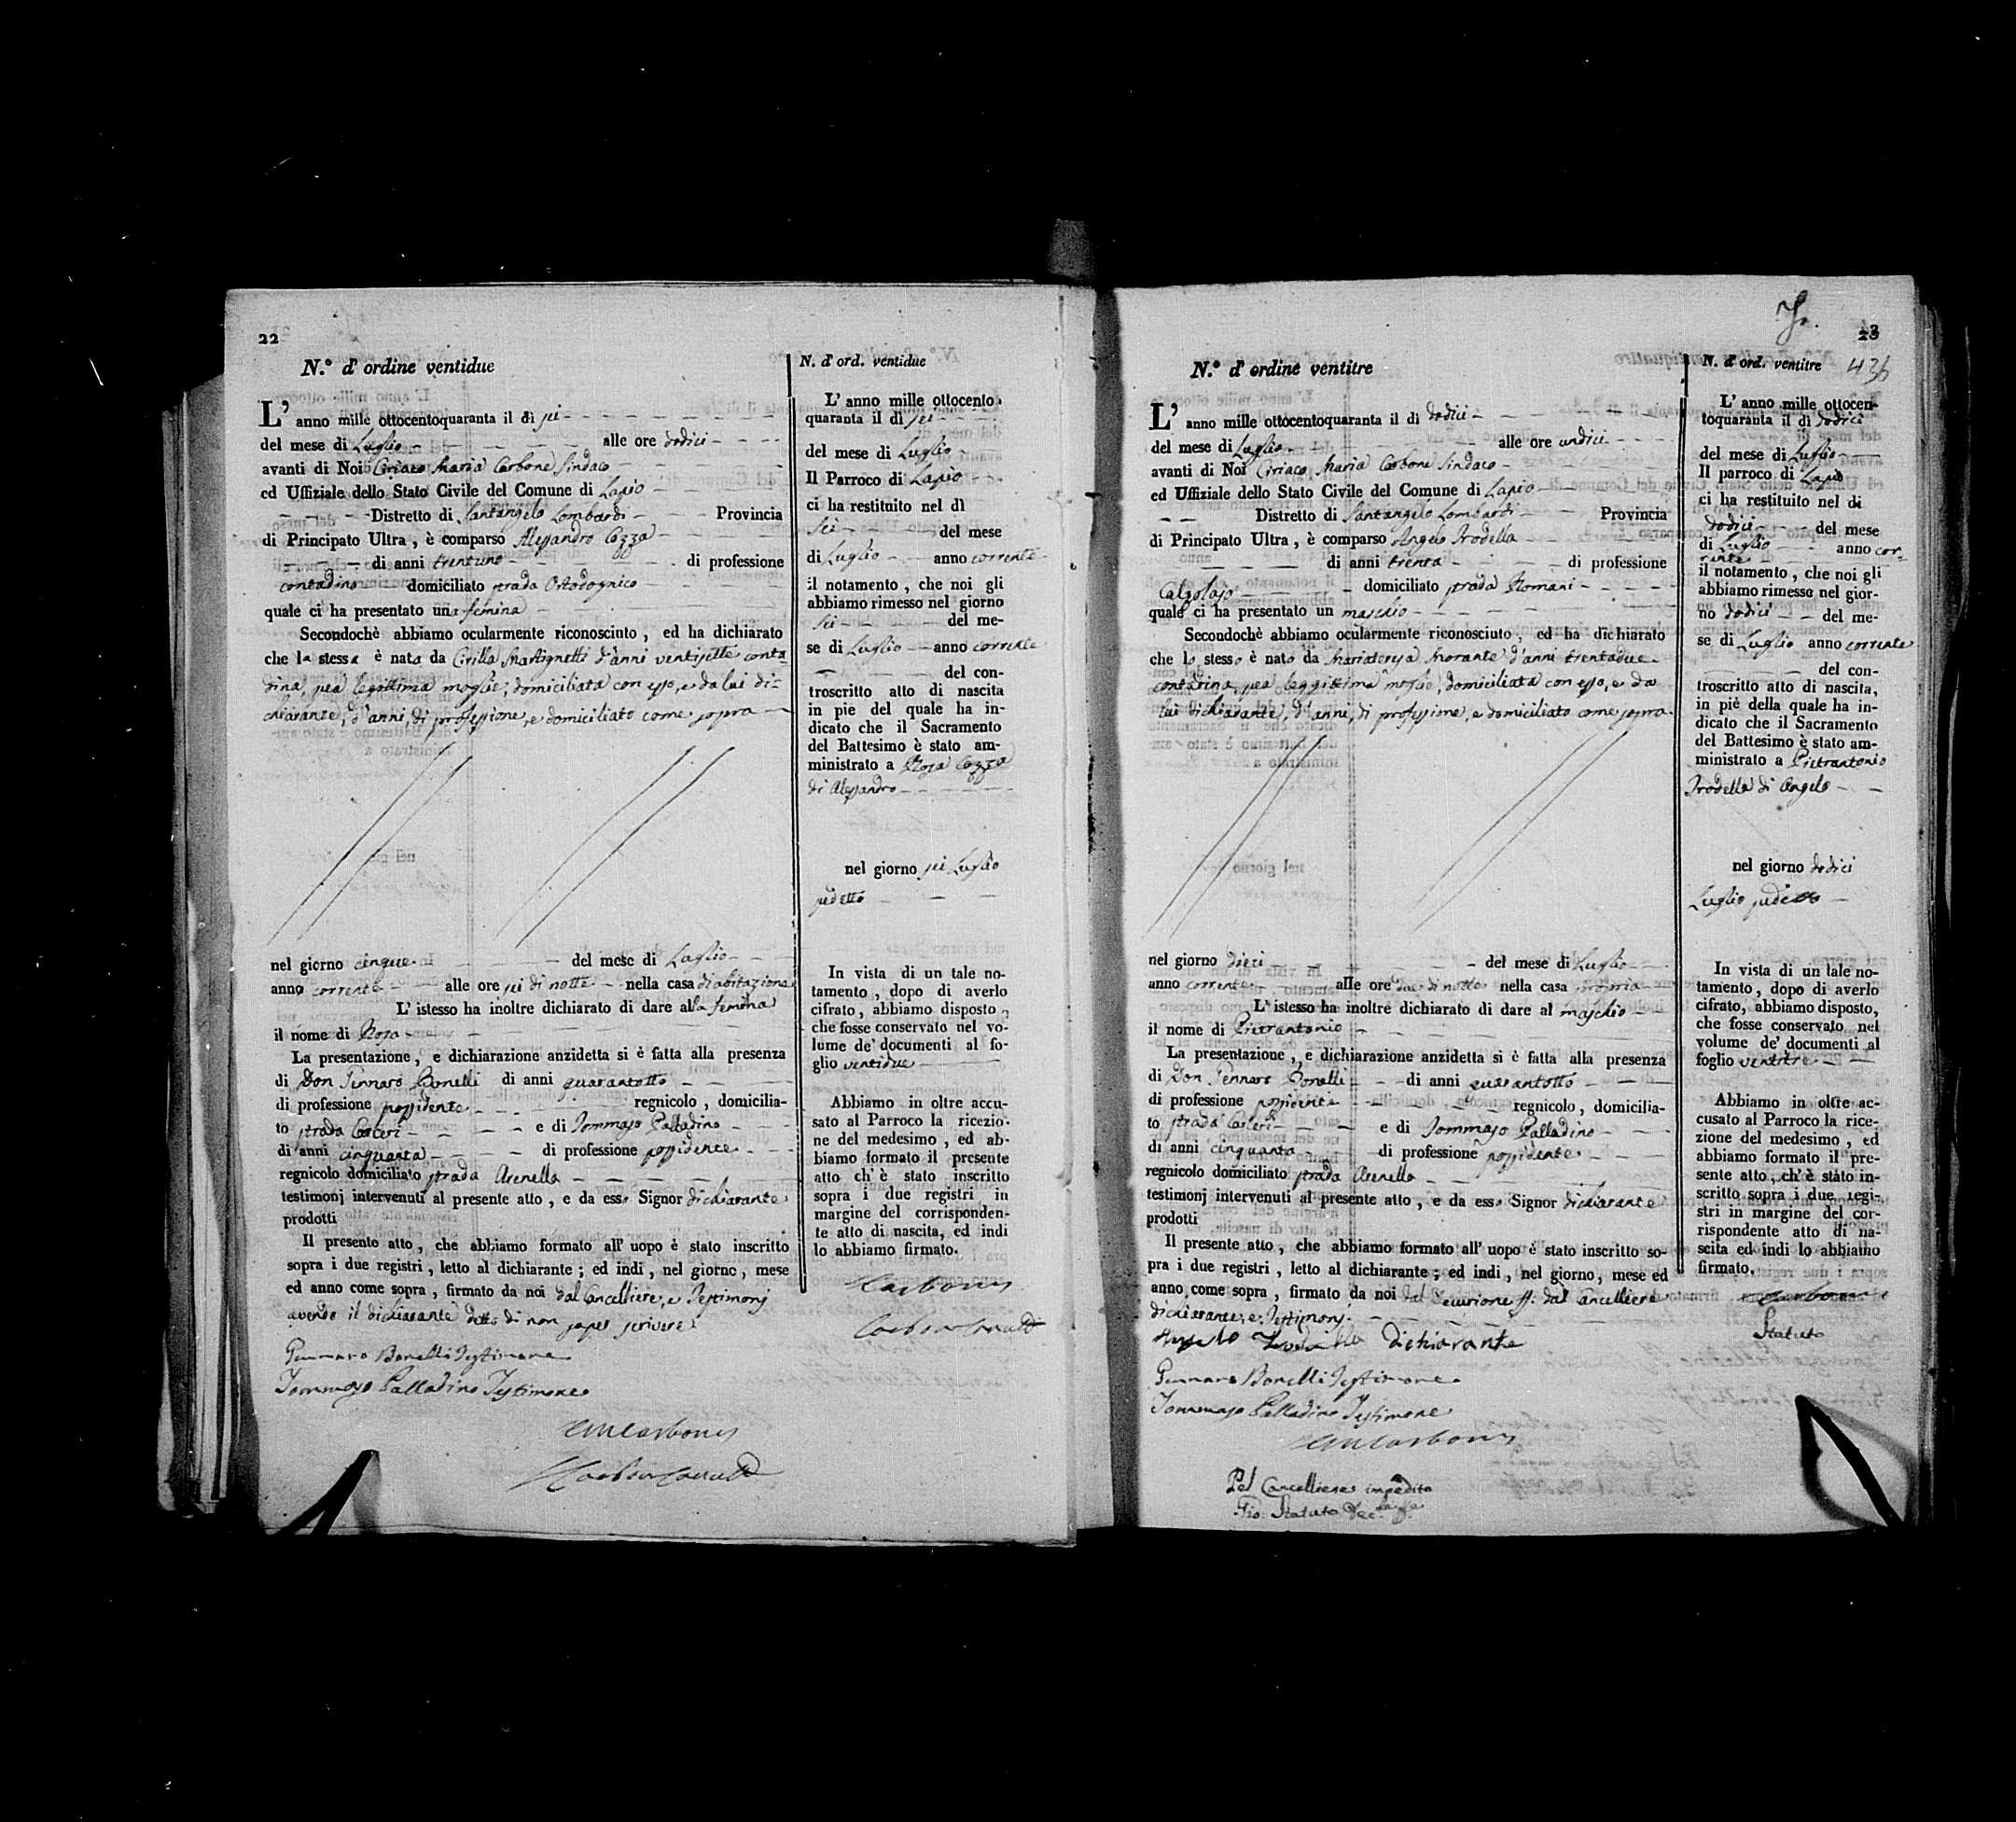 22
N.º d' ordine ventidue
L' anno mille ottocentoquaranta il dì sei
del mese di Luglio alle ore dodici
avanti di Noi Ciriaco Maria Carbone Sindaco
ed Uffiziale dello Stato Civile del Comune di Lapio
Distretto di Santangelo Lombardi Provincia
di Principato Ultra, è comparso Alessandro Cozza
di anni trentuno di professione
contadino domiciliato strada Ortodognico
quale ci ha presentato una femina
Secondochè abbiamo ocularmente riconosciuto, ed ha dichiarato
che la stessa è nata da Cirilla Martignetti d'anni ventisette conta-
dina, sua legittima moglie; domiciliata con esso, e da lui di-
chiarante, d'anni, di professione, e domiciliato come sopra
nel giorno cinque del mese di Luglio
anno corrente alle ore sei di notte nella casa di abitazione
L' istesso ha inoltre dichiarato di dare alla femina
il nome di Rosa
La presentazione, e dichiarazione anzidetta si è fatta alla presenza
di Don Gennaro Bonelli di anni quarantotto
di professione possidente regnicolo, domicilia-
to strada e di Tommaso Palladino
di anni cinquanta di professione possidente
regnicolo domiciliato strada Arenella
testimonj intervenuti al presente atto, e da esso Signor dichiarante
prodotti
Il presente atto, che abbiamo formato all' uopo è stato inscritto
sopra i due registri, letto al dichiarante; ed indi, nel giorno, mese
ed anno come sopra, firmato da noi dal Cancelliere, e Testimonj
avendo il dichiarante detto di non saper scrivere
Gennaro Bonelli Testimone
Tommaso Palladino Testimone
CMCarbone
N. d' ord. ventidue
L' anno mille ottocento-
quaranta il dì sei
del mese di Luglio
Il Parroco di Lapio
ci ha restituito nel dì
sei del mese
di Luglio anno corrente
il notamento, che noi gli
abbiamo rimesso nel giorno
sei del me-
se di Luglio anno corrente
del con-
troscritto atto di nascita
in piè del quale ha in-
dicato che il Sacramento
del Battesimo è stato am-
ministrato a Rosa Cozza
di Alessandro
nel giorno sei Luglio
sudetto
In vista di un tale no-
tamento, dopo di averlo
cifrato, abbiamo disposto,
che fosse conservato nel vo-
lume de' documenti al fo-
glio ventidue
Abbiamo in oltre accu-
sato al Parroco la ricezio-
ne del medesimo, ed ab-
biamo formato il presente
atto ch' è stato inscritto
sopra i due registri in
margine del corrisponden-
te atto di nascita, ed indi
lo abbiamo firmato.
Carbone
23
N.º d' ordine ventitre
L' anno mille ottocentoquaranta il dì dodici
del mese di Luglio alle ore undici
avanti di Noi Ciriaco Maria Carbone Sindaco
ed Uffiziale dello Stato Civile del Comune di Lapio
Distretto di Santangelo Lombardi Provincia
di Principato Ultra, è comparso Angelo Trodella
di anni trenta di professione
Calzolajo domiciliato strada Romani
quale ci ha presentato un maschio
Secondochè abbiamo ocularmente riconosciuto, ed ha dichiarato
che lo stesso è nato da Mariateresa Morante d'anni trentadue
contadina, sua leggittima moglie, domiciliata con esso, e da
lui dichiarante, d'anni, di professione, e domiciliato come sopra
nel giorno dieci del mese di Luglio
anno corrente alle ore due di notte nella casa propria
L' istesso ha inoltre dichiarato di dare al maschio
il nome di Pietrantonio
La presentazione, e dichiarazione anzidetta si è fatta alla presenza
di Don Gennaro Bonelli di anni quarantotto
di professione possidente regnicolo, domicilia-
to strada e di Tommaso Palladino
di anni cinquanta di professione possidente
regnicolo domiciliato strada Arenella
testimonj intervenuti al presente atto, e da esso Signor dichiarante
prodotti
Il presente atto, che abbiamo formato all' uopo è stato inscritto so-
pra i due registri, letto al dichiarante; ed indi, nel giorno, mese ed
anno come sopra, firmato da noi dal Decurione ff. dal Cancelliere
dichiarante, e Testimonj.
Angelo Trodella Dichiarante
Gennaro Bonelli Testimone
Tommaso Palladino Testimone
CMCarbone
Pel Cancelliere impedito
Gio. Statuto
N. d' ord. ventitre
L' anno mille ottocen-
toquaranta il dì dodici
del mese di Luglio
Il parroco di Lapio
ci ha restituito nel di
dodici del mese
di Luglio anno cor-
rente
il notamento, che noi gli
abbiamo rimesso nel gior-
no dodici del me-
se di Luglio anno corrente
del con-
troscritto atto di nascita,
in piè della quale ha in-
dicato che il Sacramento
del Battesimo è stato am-
ministrato a Pietrantonio
Trodella di Angelo
nel giorno dodici
Luglio sudetto
In vista di un tale no-
tamento, dopo di averlo
cifrato, abbiamo disposto,
che fosse conservato nel
volume de' documenti al
foglio ventitre
Abbiamo in oltre ac-
cusato al Parroco la rice-
zione del medesimo, ed
abbiamo formato il pre-
sente atto, ch' è stato in-
scritto sopra i due regi-
stri in margine del cor-
rispondente atto di na-
scita ed indi lo abbiamo
firmato.
Carbone
Statuto